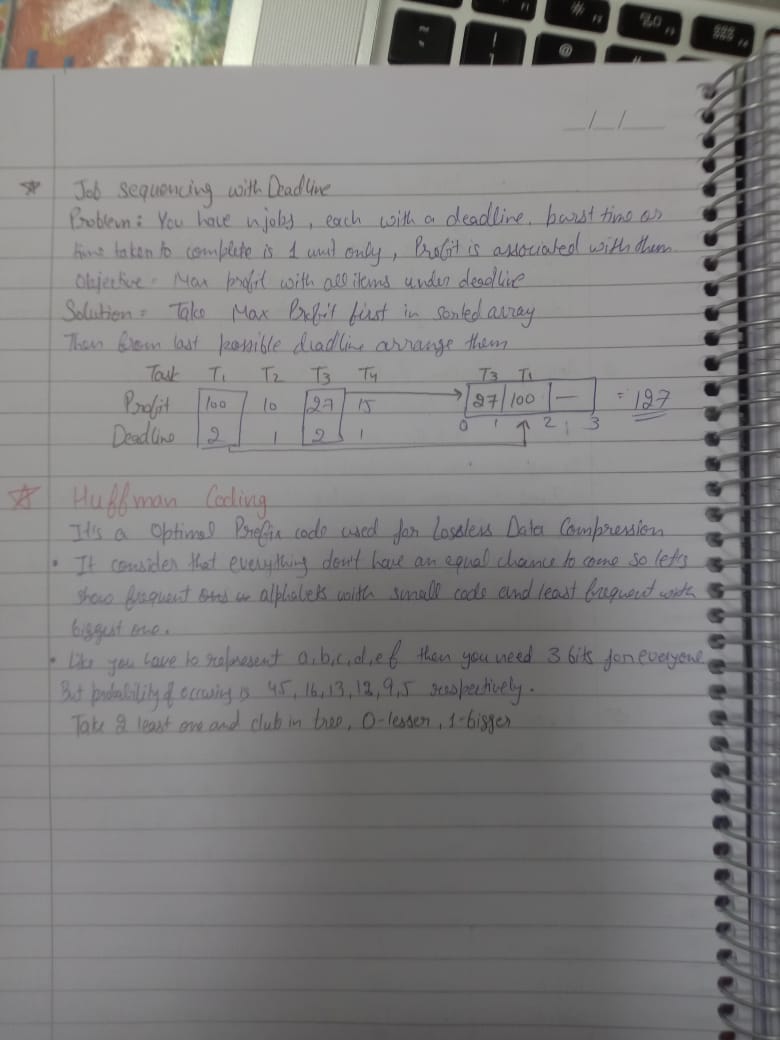 _/_/_
* Job sequencing with Deadline
Problem: You have n jobs, each with a deadline, burst time or
time taken to complete is 1 unit only, Profit is associated with them
Objective - Max profit with all items under deadline
Solution = Take Max Profit first in sorted array
Then from last possible deadline arrange them
Task T1 T2 T3 T4 T3 T1
Profit 100 10 27 15 27 100 — = 127
Deadline 2 1 2 1 0 1 2 3
* Huffman Coding
It's a Optimal Prefix code used for Lossless Data Compression
• It consider that everything don't have an equal chance to come so let's
show frequent ones alphabets with small code and least frequent with
biggest one.
• Like you have to represent a,b,c,d,e f then you need 3 bits for everyone
But probability of occuring is 45, 16, 13, 12, 9, 5 respectively.
Take 2 least one and club in tree, 0-lesser, 1-bigger